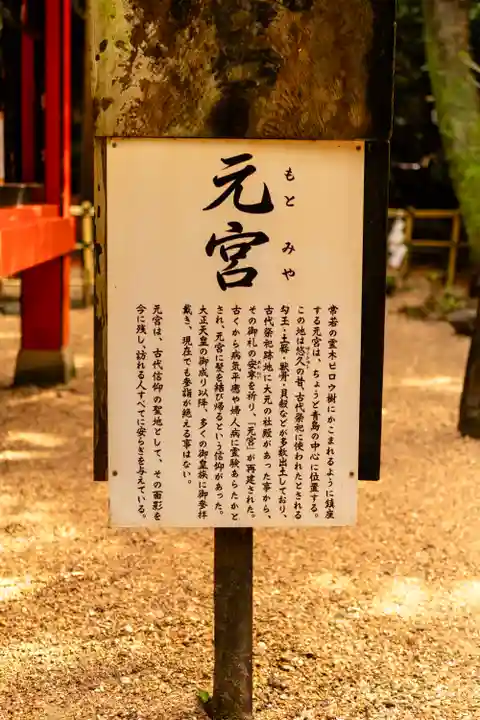 元宮
もとみや
常若の霊木ビロウ樹にかこまれるように鎮座
する元宮は、ちょうど青島の中心に位置する。
この地は悠久の昔、古代祭祀に使われたとされる
勾玉・土器・獣骨・貝殻などが多数出土しており、
古代祭祀跡地に大元の社殿があった事から、
その御札の安寧を祈り、「元宮」が再建された。
古くから病気平癒や婦人病に霊験あらたかと
され、元宮に髪を結び帰るという信仰があった。
大正天皇の御成り以降、多くの御皇族に御参拝
戴き、現在でも参詣が絶える事はない。
元宮は、古代信仰の聖地として、その面影を
今に残し、訪れる人すべてに安らぎを与えている。